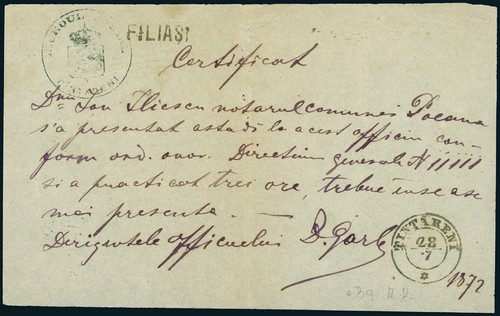 FILIASI
Certificat
Dnu Ion Iliescu notarul comunei Poeana
s'a presentat astadi la acest officiu con-
form ord. onor. Directiuni generale N 11111
si a practicat trei ore, trebue inse a se
mai presenta. —
Dirigintele officiului D. Garb
TINTARENI
28
7
1872